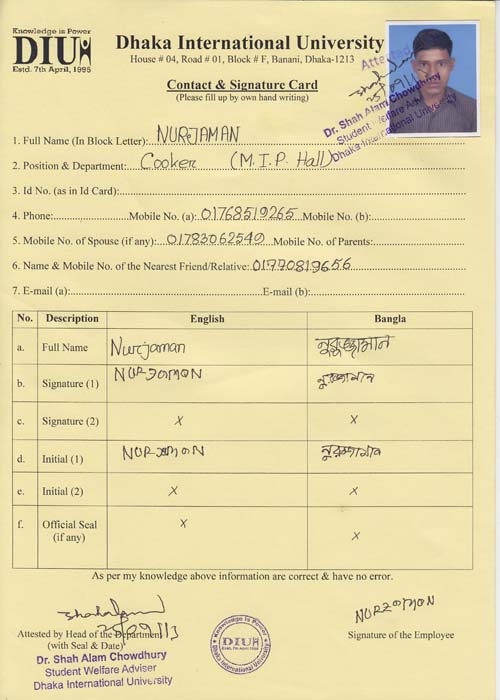 Knowledge is Power
DIU
Estd. 7th April, 1995
Dhaka International University
House # 04, Road # 01, Block # F, Banani, Dhaka-1213
Contact & Signature Card
(Please fill up by own hand writing)
Attested
25/09/13
Dr. Shah Alam Chowdhury
Student Welfare Adviser
Dhaka International University
1. Full Name (In Block Letter): NURJAMAN
2. Position & Department: Cooker (M.I.P. Hall)
3. Id No. (as in Id Card):
4. Phone: Mobile No. (a): 01768519265 Mobile No. (b):
5. Mobile No. of Spouse (if any): 01783062549 Mobile No. of Parents:
6. Name & Mobile No. of the Nearest Friend/Relative: 01770819656
7. E-mail (a): E-mail (b):
No. Description English Bangla
a. Full Name Nurjaman নুরুজ্জামান
b. Signature (1) NURJOMON
c. Signature (2) x x
d. Initial (1) NURJAMON
e. Initial (2) x x
f. Official Seal x
(if any) x
As per my knowledge above information are correct & have no error.
25/09/13
NURZOMON
Attested by Head of the Department
(with Seal & Date)
Signature of the Employee
Dr. Shah Alam Chowdhury
Student Welfare Adviser
Dhaka International University
Knowledge is Power
DIU
Estd. 7th April 1995
Dhaka International University